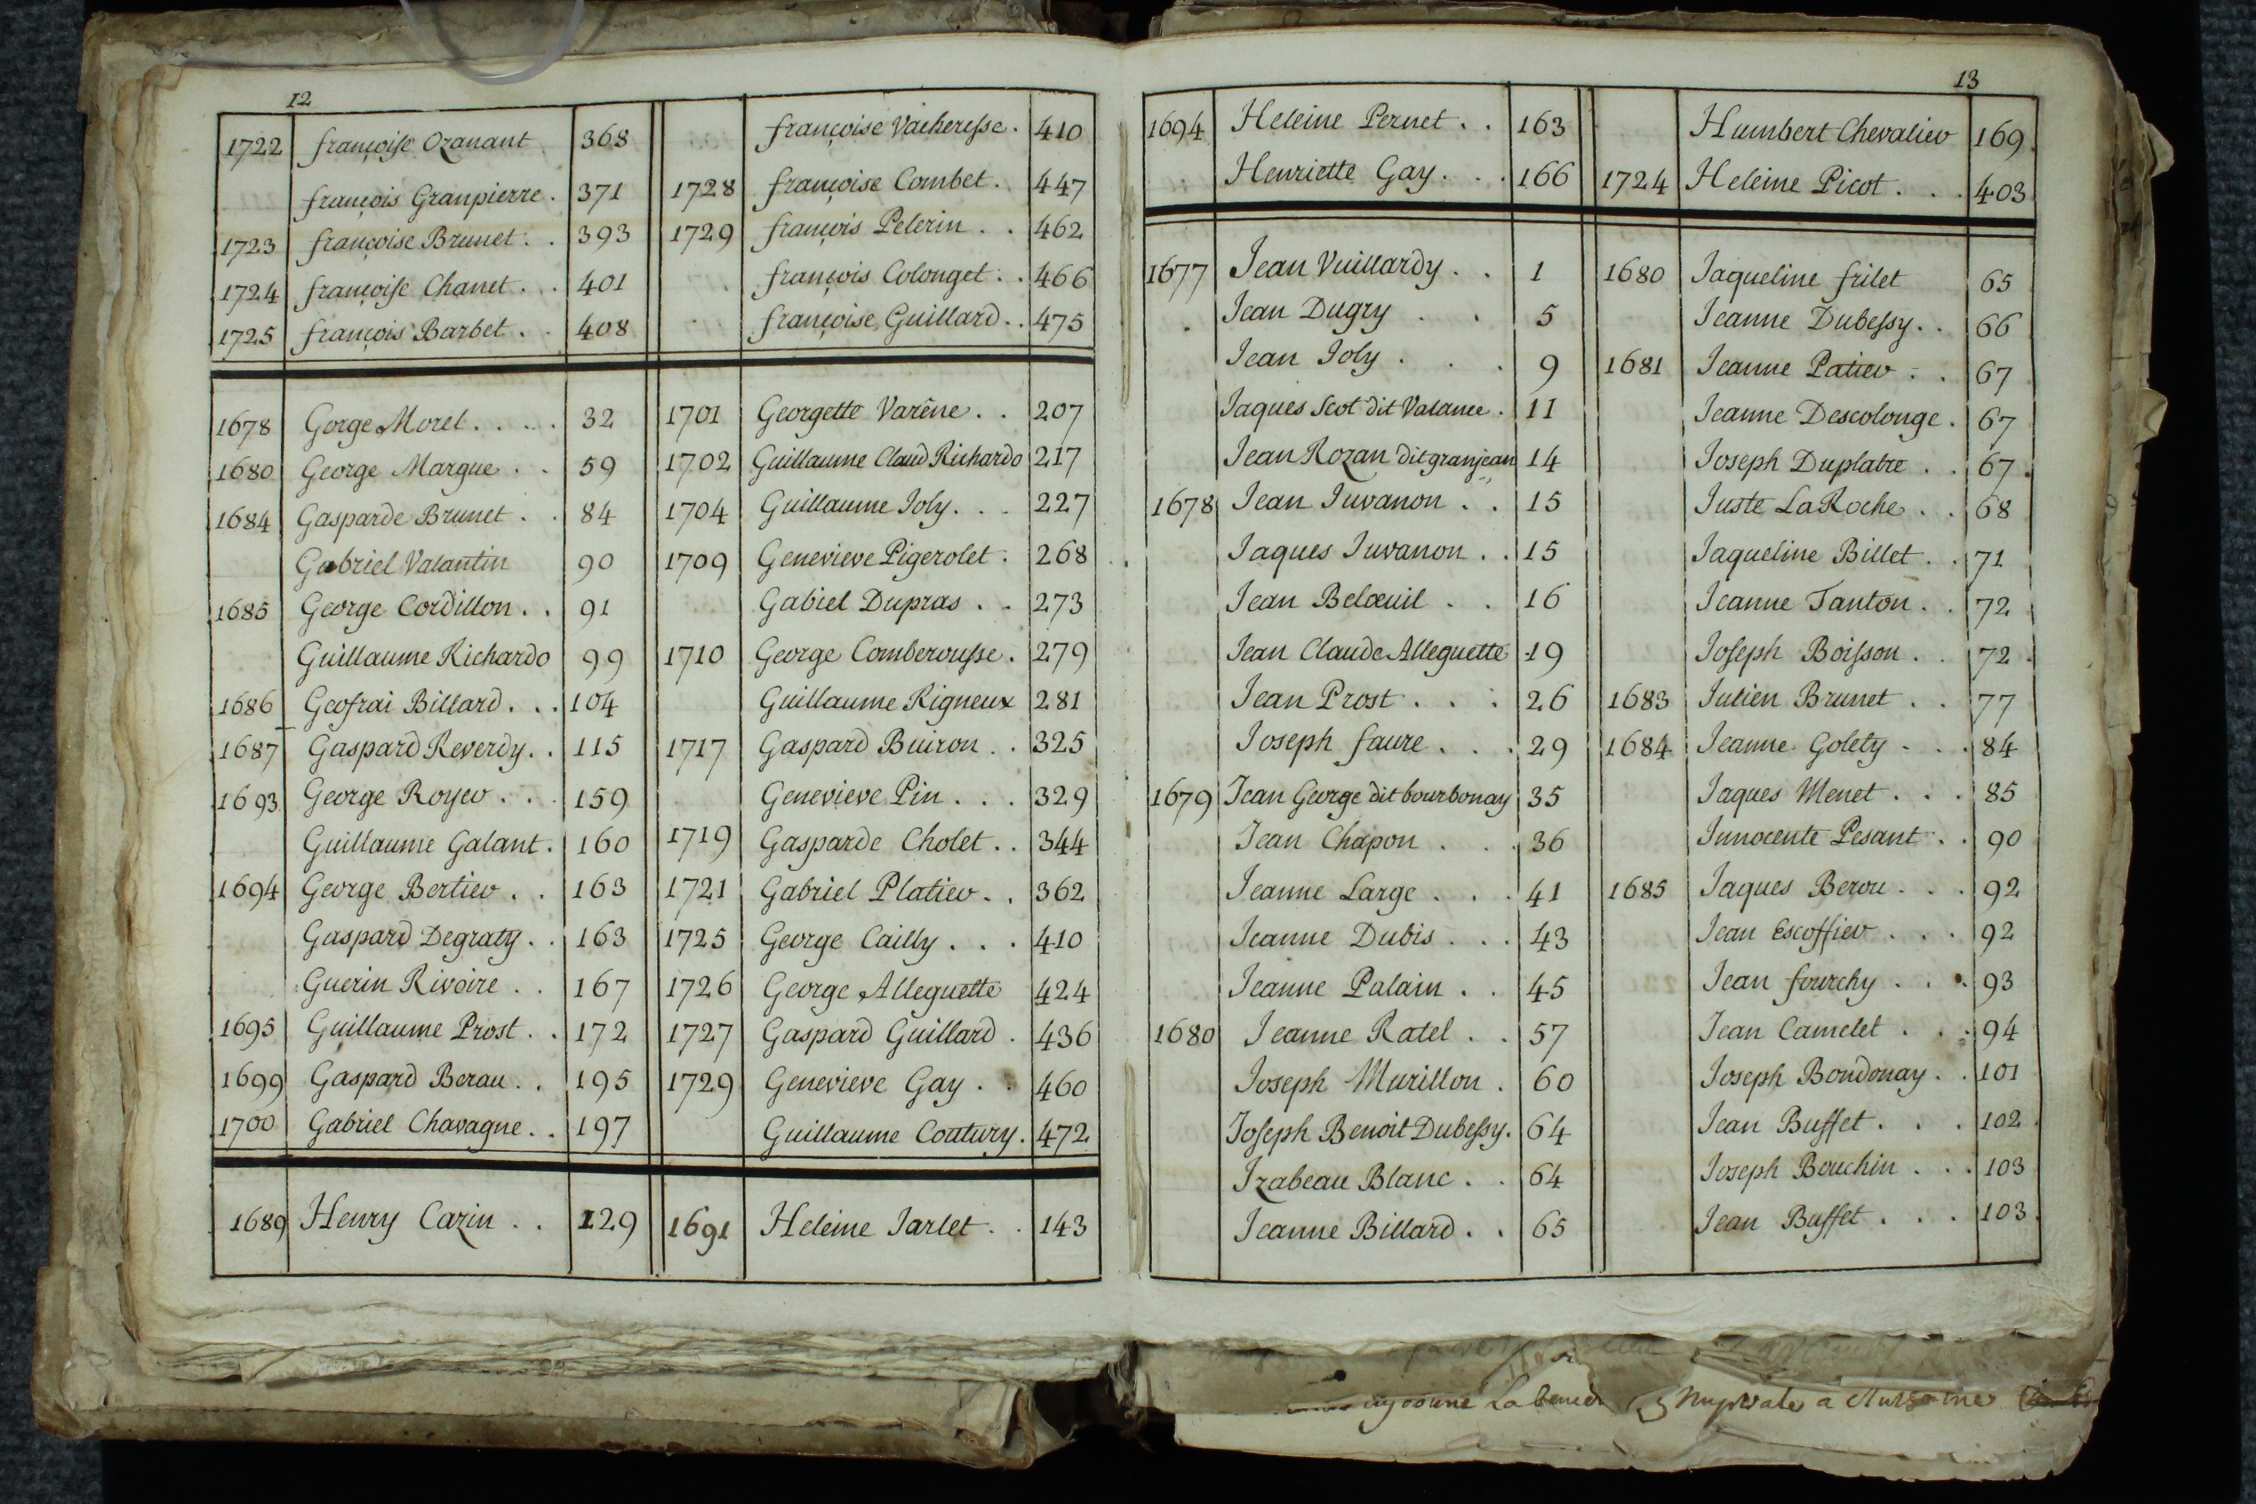 12
1722 françoise Ozanant 368
françois Granpierre . 371
1723 françoise Brunet . . 393
1724 françoise Chanet . . 401
1725 françois Barbet . . 408
françoise Vacheresse . 410
1728 françoise Combet . 447
1729 françois Pelerin . . 462
françois Colonget . . 466
françoise Guillard . . 475
1678 Gorge Morel . . . . 32
1680 George Margue . . 59
1684 Gasparde Brunet . . 84
Gabriel Valantin 90
1685 George Cordillon . . 91
Guillaume Richard 99
1686 Geofrai Billard . . . 104
1687 Gaspard Reverdy . . 115
1693 George Royer . . . 159
Guillaume Galant . 160
1694 George Bertier . . 163
Gaspard Degraty . . 163
Guerin Rivoire . . 167
1695 Guillaume Prost . . 172
1699 Gaspard Berau . . 195
1700 Gabriel Chavagne . . 197
1701 Georgette Varêne . . 207
1702 Guillaume Claud Richard 217
1704 Guillaume Joly . . . 227
1709 Genevieve Pigerolet . 268
Gabiel Dupras . . 273
1710 George Comberousse . 279
Guillaume Rigneux 281
1717 Gaspard Buiron . . 325
Genevieve Pin . . . 329
1719 Gasparde Cholet . . 344
1721 Gabriel Platier . . 362
1725 George Cailly . . . 410
1726 George Alleguette 424
1727 Gaspard Guillard . 436
1729 Genevieve Gay . . 460
Guillaume Coutury . 472
1689 Henry Cazin . . 129
1691 Heleine Jarlet . . 143
13
1694 Heleine Pernet . . 163
Henriette Gay . . . 166
Humbert Chevalier 169
1724 Heleine Picot . . . 403
1677 Jean Vuillardy . . 1
Jean Dugry . . 5
Jean Joly . . . 9
Jaques Scot dit Valance . 11
Jean Rozan dit granjean 14
1678 Jean Juvanon . . 15
Jaques Juvanon . . 15
Jean Belœuil . . 16
Jean Claude Alleguette 19
Jean Prost . . . 26
Joseph faure . . . 29
1679 Jean George dit bourbonay 35
Jean Chapon . . . 36
Jeanne Large . . . 41
Jeanne Dubis . . . 43
Jeanne Palain . . 45
1680 Jeanne Ratel . . 57
Joseph Murillon . 60
Joseph Benoit Dubessy . 64
Izabeau Blanc . . 64
Jeanne Billard . . 65
1680 Jaqueline frilet 65
Jeanne Dubessy . . 66
1681 Jeanne Patier . . 67
Jeanne Descolonge . 67
Joseph Duplatre . . 67
Juste LaRoche . . 68
Jaqueline Billet . . 71
Jeanne Tanton . . 72
Joseph Boisson . . 72
1683 Julien Brunet . . 77
1684 Jeanne Golety . . . 84
Jaques Menet . . . 85
Innocente Pesant . . 90
1685 Jaques Berou . . . 92
Jean Escoffier . . . 92
Jean fourchy . . . 93
Jean Camelet . . . 94
Joseph Bondonay . . 101
Jean Buffet . . . 102
Joseph Bouchin . . . 103
Jean Buffet . . . 103